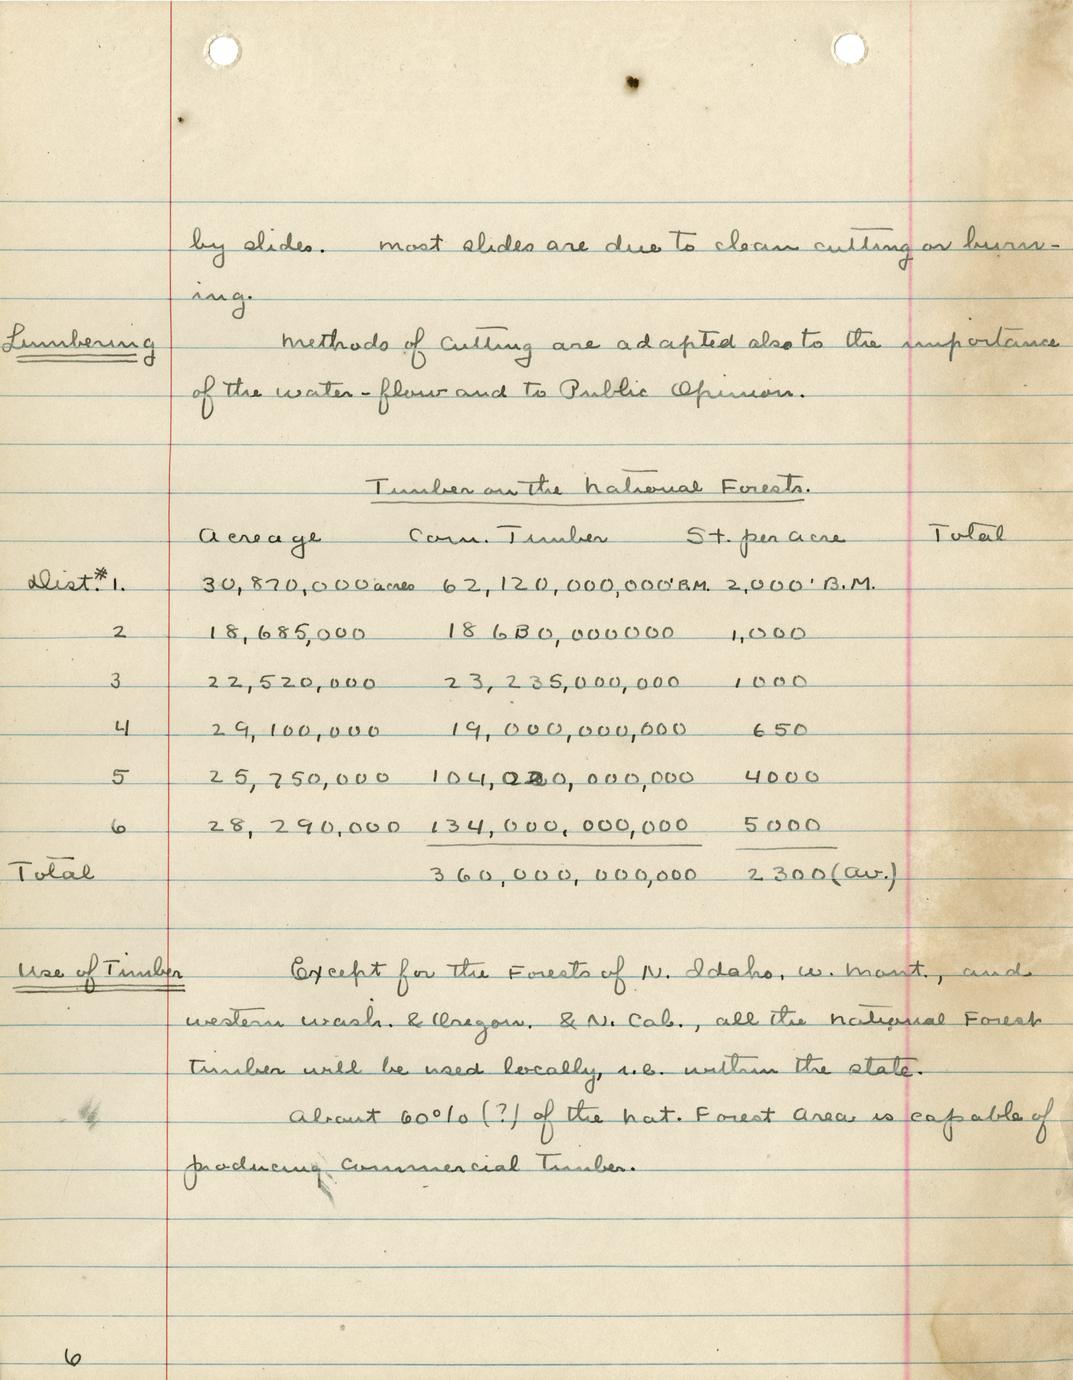 by slides. Most slides are due to clean cutting or burn-
ing.
Lumbering Methods of Cutting are adapted also to the importance
of the water-flow and to Public Opinion.
Timber on the National Forests.
Acreage Com. Timber St. per acre Total
Dist. #1. 30,870,000 acres 62,120,000,000' B.M. 2,000' B.M.
2 18,685,000 18 680,000000 1,000
3 22,520,000 23,235,000,000 1000
4 29,100,000 19,000,000,000 650
5 25,750,000 104,020,000,000 4000
6 28,290,000 134,000,000,000 5000
Total 360,000,000,000 2300 (av.)
Use of Timber Except for the Forests of N. Idaho, W. Mont., and
western Wash. & Oregon. & N. Cal., all the National Forest
timber will be used locally, i.e. within the state.
About 60% (?) of the Nat. Forest Area is capable of
producing Commercial Timber.
6